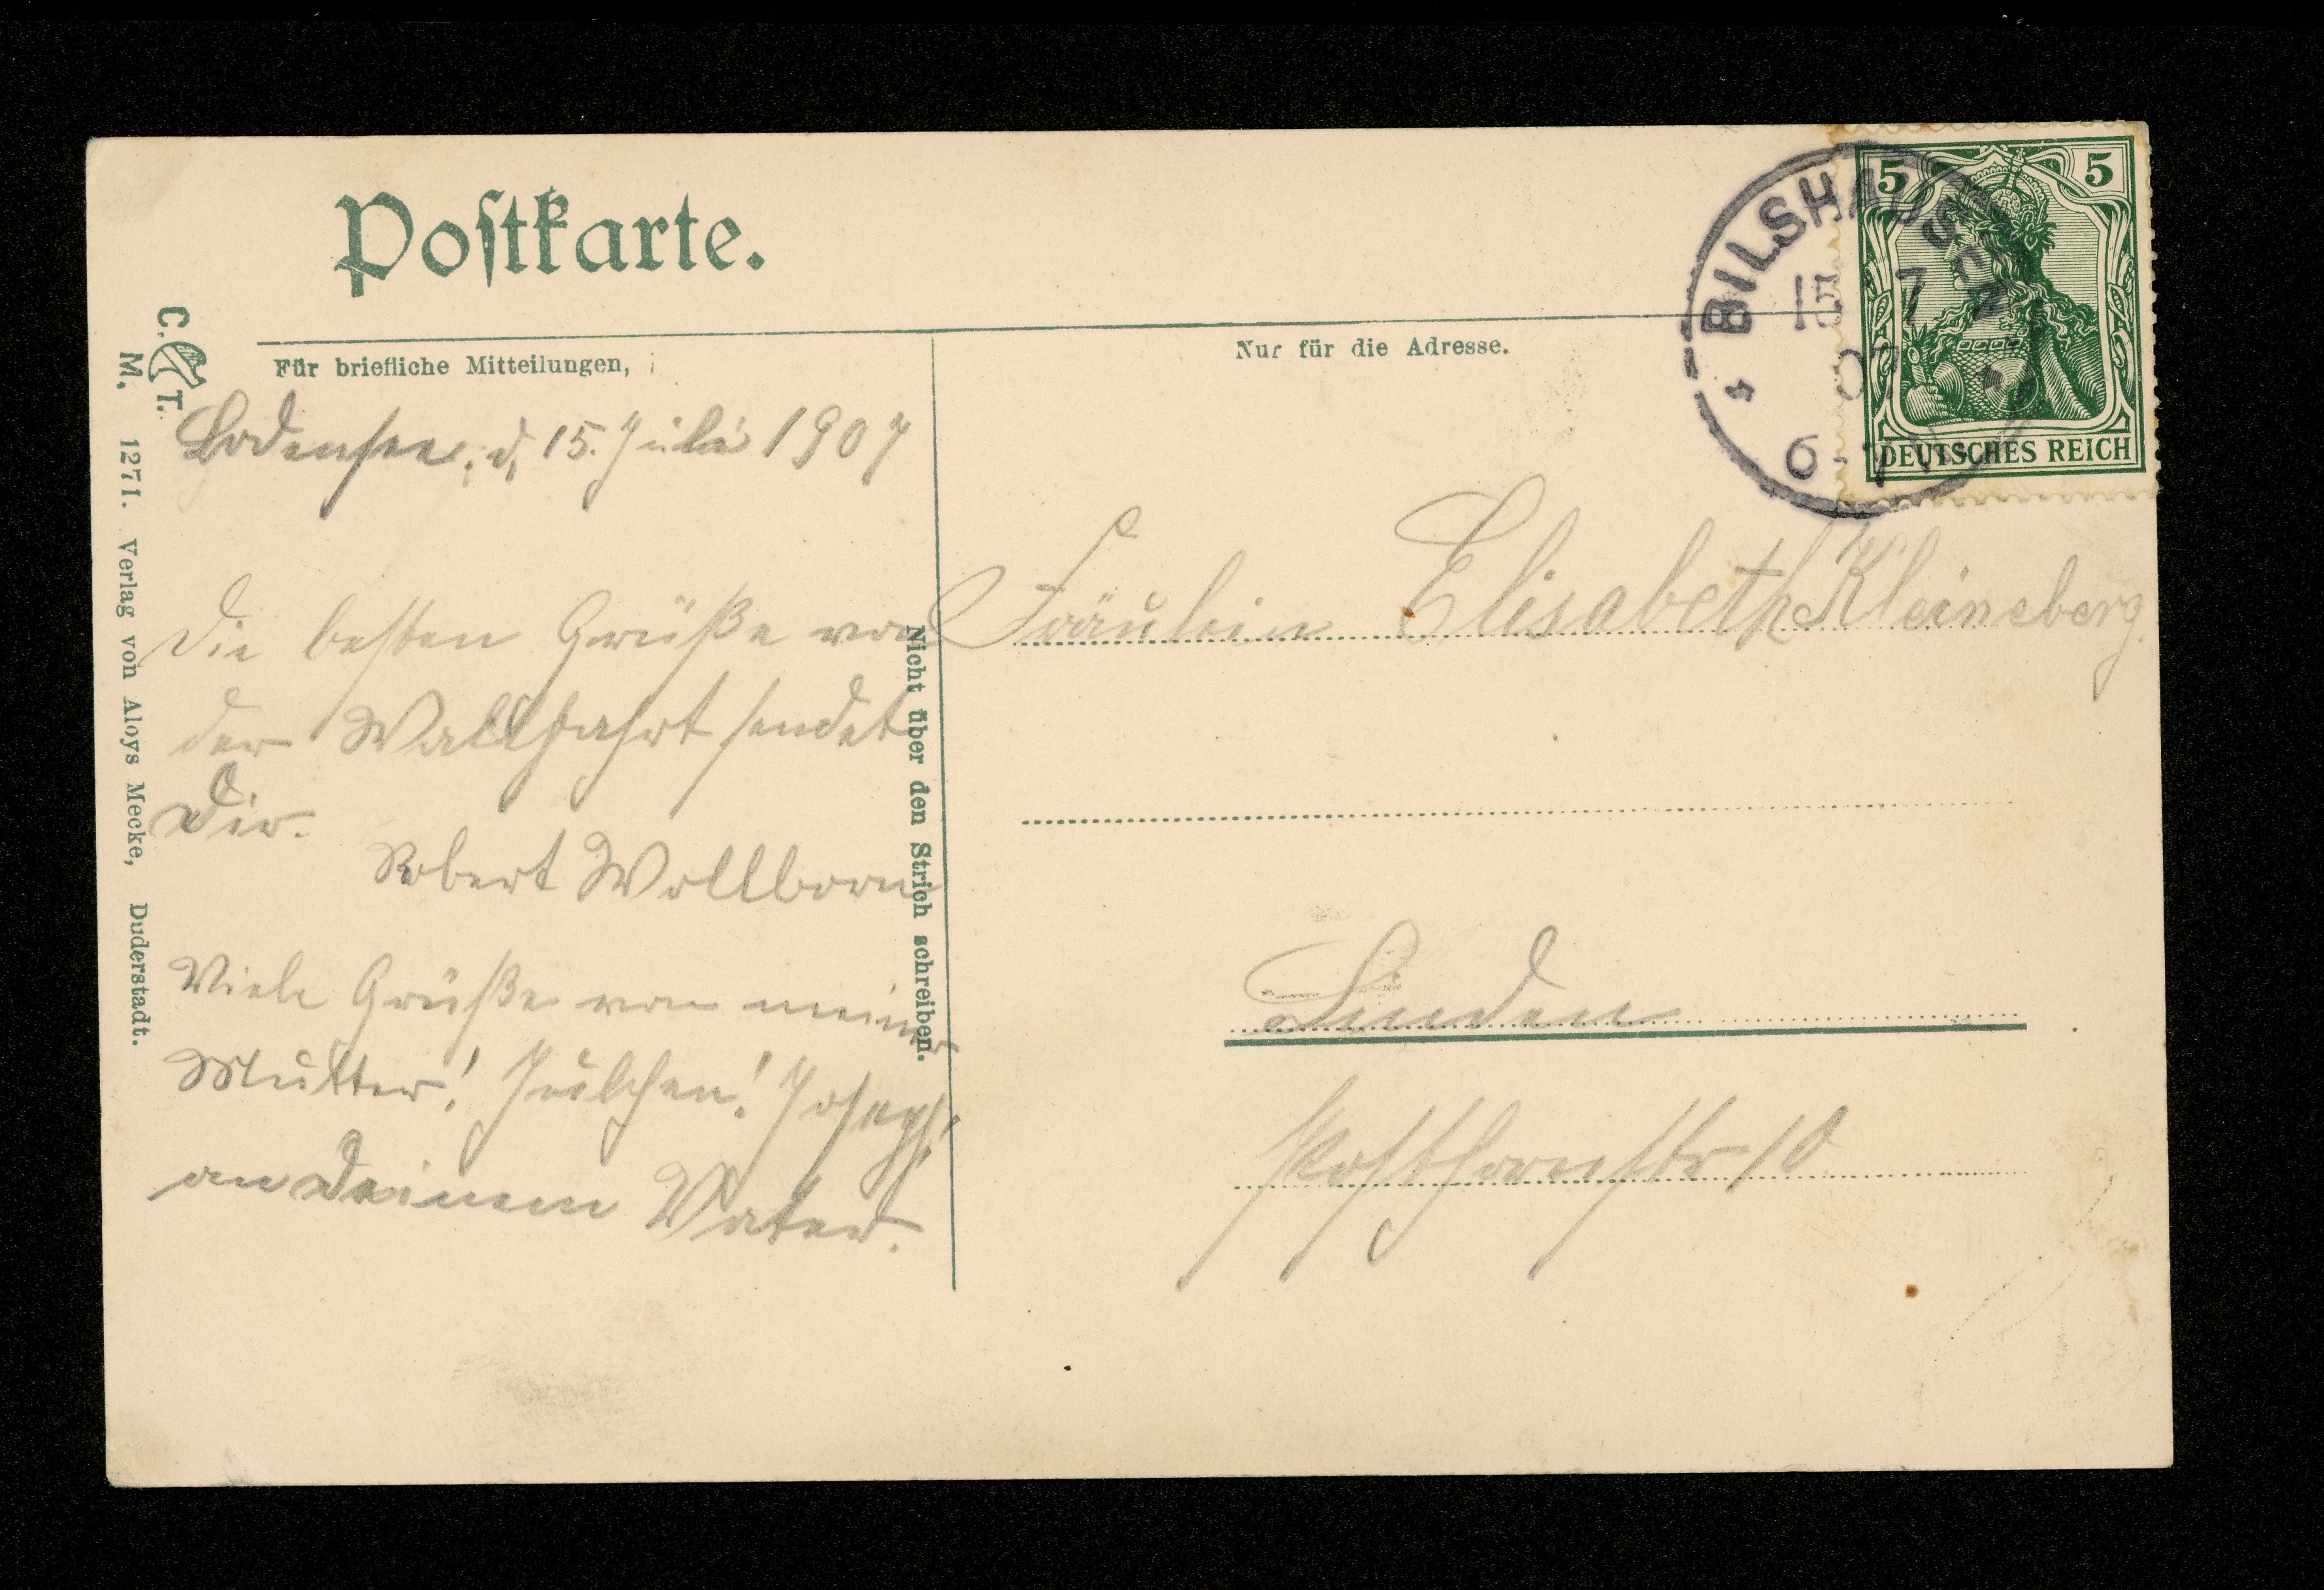 Postkarte.
5 5
DEUTSCHES REICH
BILSHAUSEN
15 7
07
6-7 N
Für briefliche Mitteilungen,
Nur für die Adresse.
C. T.
M. 1271. Verlag von Aloys Mecke, Duderstadt.
Nicht über den Strich schreiben.
Bodensee, d. 15. Juli 1907
Die besten Grüße von
der Wallfahrt sendet
Dir.
Robert Wollborn
Viele Grüße von meiner
Mutter! Julchen! Joseph!
an Deinem Vater.
Fräulein Elisabeth Kleineberg.
Linden
Posthornstr 10